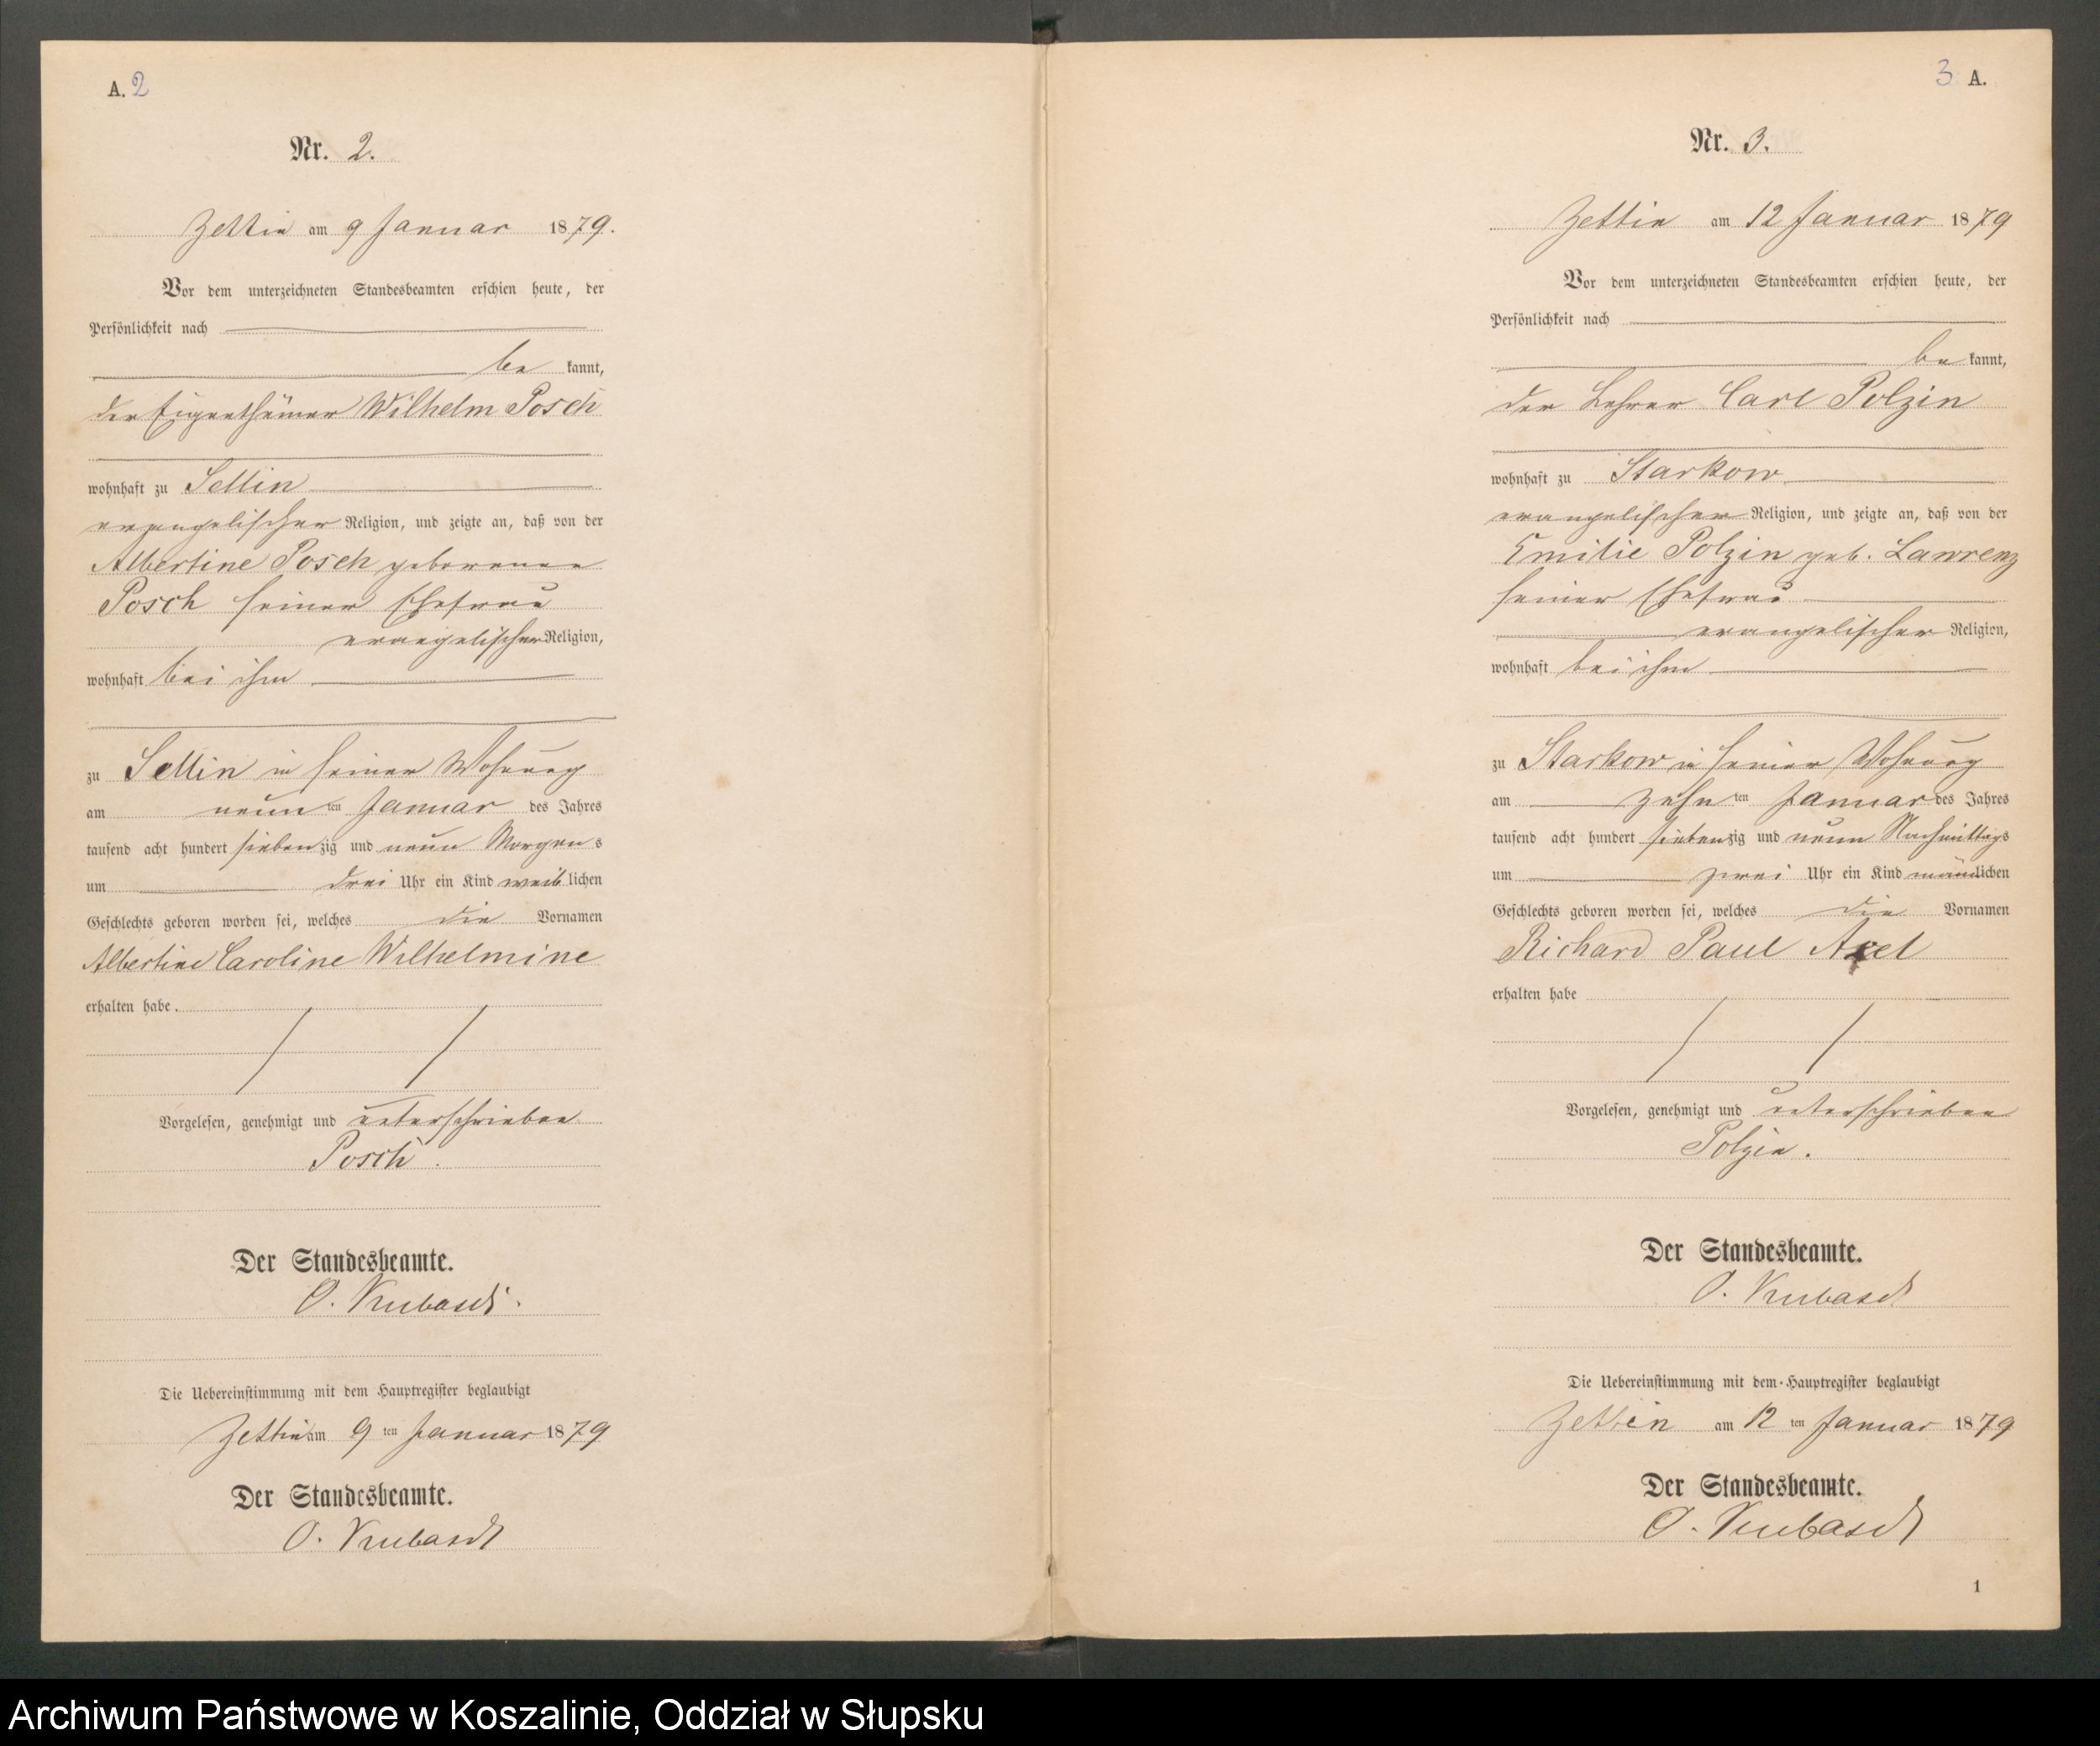 A. 2
Nr. 2.
Zettin am 9 Januar 1879.
Vor dem unterzeichneten Standesbeamten erschien heute, der
Persönlichkeit nach
be kannt,
der Eigenthümer Wilhelm Posch
wohnhaft zu Sellin
evangelischer Religion, und zeigte an, daß von der
Albertine Posch geborenen
Posch seiner Ehefrau
evangelischer Religion,
wohnhaft bei ihm
zu Sellin in seiner Wohnung
am neun ten Januar des Jahres
tausend acht hundert siebenzig und neun Morgens
um drei Uhr ein Kind weiblichen
Geschlechts geboren worden sei, welches die Vornamen
Albertine Caroline Wilhelmine
erhalten habe.
Vorgelesen, genehmigt und unterschrieben
Posch.
Der Standesbeamte.
O.
Die Uebereinstimmung mit dem Hauptregister beglaubigt
Zettin am 9 ten Januar 1879
Der Standesbeamte.
O.
3 A.
Nr. 3.
Zettin am 12 Januar 1879
Vor dem unterzeichneten Standesbeamten erschien heute, der
Persönlichkeit nach
be kannt,
der Lehrer Carl Polzin
wohnhaft zu Starkow
evangelischer Religion, und zeigte an, daß von der
Emilie Polzin geb. Lawrenz
seiner Ehefrau
evangelischer Religion,
wohnhaft bei ihm
zu Starkow in seiner Wohnung
am zehn ten Januar des Jahres
tausend acht hundert siebenzig und neun Nachmittags
um zwei Uhr ein Kind männlichen
Geschlechts geboren worden sei, welches die Vornamen
Richard Paul Axel
erhalten habe
Vorgelesen, genehmigt und unterschrieben
Polzin.
Der Standesbeamte.
O.
Die Uebereinstimmung mit dem Hauptregister beglaubigt
Zettin am 12 ten Januar 1879
Der Standesbeamte.
O.
1
Archiwum Państwowe w Koszalinie, Oddział w Słupsku